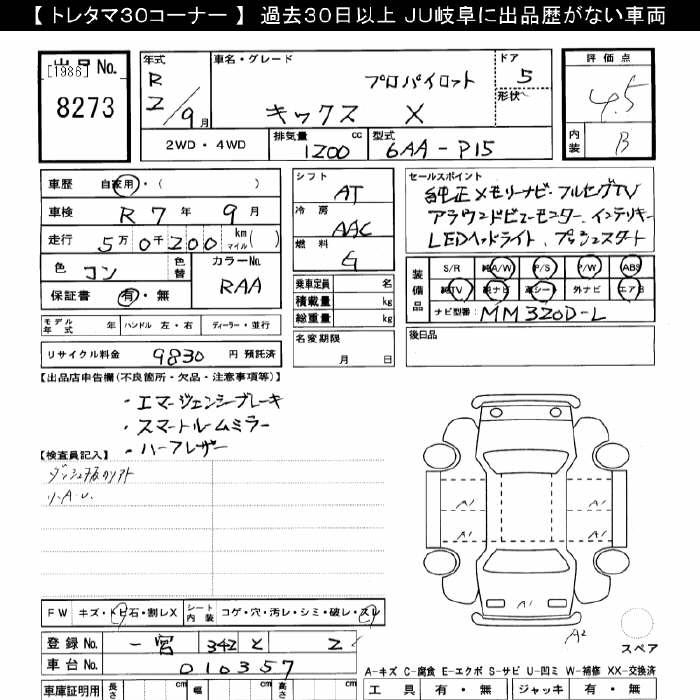 【 トレタマ30コーナー 】 過去30日以上 JU岐阜に出品歴がない車両
出品No.
[1986]
8273
年式
R
2/9月
車名・グレード
プロパイロット
キックス X
ドア
5
形状
評価点
4.5
内装
B
2WD・4WD
排気量 cc
1200
型式
6AA-P15
車歴 自家用・( )
車検 R 7年 9月
走行 5万0千200 km マイル( )
色 コン
色替
カラーNo.
RAA
保証書 有・無
シフト
AT
冷房
AAC
燃料
G
乗車定員 名
積載量 kg
総重量 kg
セールスポイント
純正メモリナビ・フルセグTV
アラウンドビューモニター、インテリキー
LEDヘッドライト、プッシュスタート
装備品
S/R 純A/W P/S P/W ABS
純TV 純ナビ 革シート 外ナビ エアB
ナビ型番: MM320D-L
モデル年式 年
ハンドル 左・右
ディーラー・並行
名変期限
月 日
後日品
リサイクル料金 9830 円 預託済
【出品店申告欄(不良箇所・欠品・注意事項等)】
・エマージェンシーブレーキ
・スマートルームミラー
・ハーフレザー
【検査員記入】
A1
A1
A1
A1
A1
A2
スペア
FW キズ・トビ石・割レX
シート内装 コゲ・穴・汚レ・シミ・破レ・スレ
登録No. 一宮 342 と 2
車台No. 010357
A-キズ C-腐食 E-エクボ S-サビ U-凹ミ W-補修 XX-交換済
車庫証明用 長さ cm 幅 cm 高さ cm
工具 有・無 ジャッキ 有・無